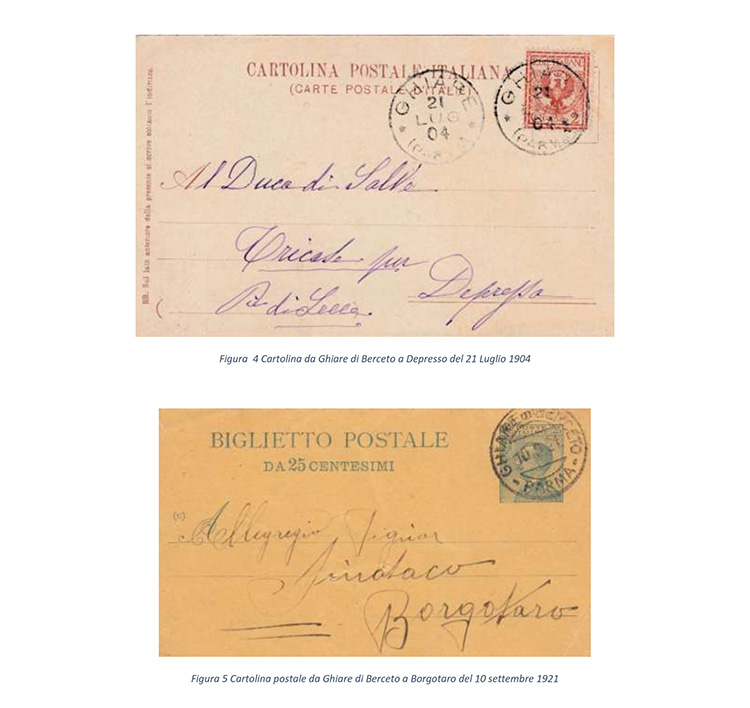 CARTOLINA POSTALE ITALIANA
(CARTE POSTALE D'ITALIE)
GHIARE
21
LUG
04
(PARMA)
GHIA
21
04
(PARMA
NB. Sul lato anteriore della presente si scrive soltanto l'indirizzo.
Al Duca di Salve
Tricase per
Depressa
P. di Lecce
Figura 4 Cartolina da Ghiare di Berceto a Depresso del 21 Luglio 1904
BIGLIETTO POSTALE
DA 25 CENTESIMI
GHIARE DI BERCETO
10
PARMA
Signor
Sindaco
Borgotaro
Figura 5 Cartolina postale da Ghiare di Berceto a Borgotaro del 10 settembre 1921